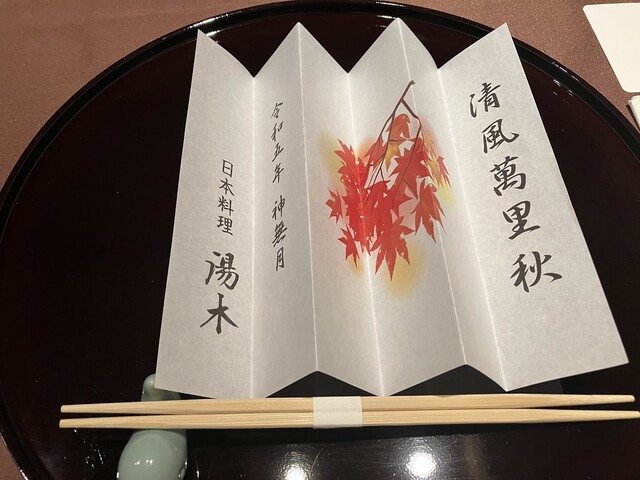 清風萬里秋
令和五年 神無月
日本料理 湯木